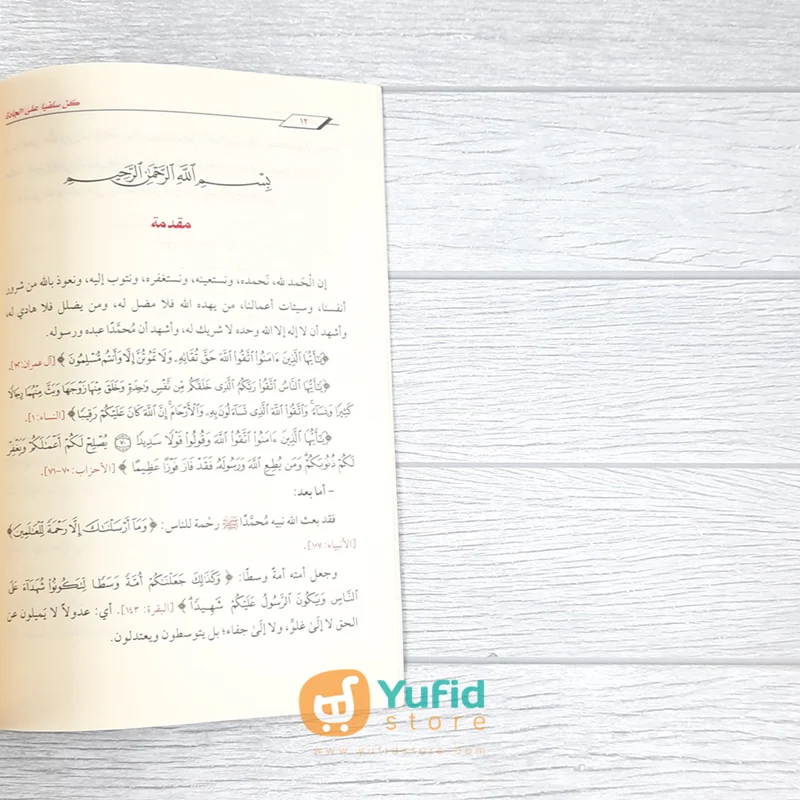 كن سلفيا على الجادة
١٢
بِسْمِ اللَّهِ الرَّحْمَٰنِ الرَّحِيمِ
مقدمة
إن الْحَمد لله، نَحمده، ونستعينه، ونستغفره، ونتوب إليه، ونعوذ بالله من شرور
أنفسنا، وسيئات أعمالنا، من يهده الله فلا مضل له، ومن يضلل فلا هادي له،
وأشهد أن لا إله إلا الله وحده لا شريك له، وأشهد أن مُحمَّدًا عبده ورسوله.
﴿يَٰٓأَيُّهَا ٱلَّذِينَ ءَامَنُوا۟ ٱتَّقُوا۟ ٱللَّهَ حَقَّ تُقَاتِهِۦ وَلَا تَمُوتُنَّ إِلَّا وَأَنتُم مُّسْلِمُونَ﴾ [آل عمران:
﴿يَٰٓأَيُّهَا ٱلنَّاسُ ٱتَّقُوا۟ رَبَّكُمُ ٱلَّذِى خَلَقَكُم مِّن نَّفْسٍ وَٰحِدَةٍ وَخَلَقَ مِنْهَا زَوْجَهَا وَبَثَّ مِنْهُمَا رِجَالًا
كَثِيرًا وَنِسَآءً وَٱتَّقُوا۟ ٱللَّهَ ٱلَّذِى تَسَآءَلُونَ بِهِۦ وَٱلْأَرْحَامَ إِنَّ ٱللَّهَ كَانَ عَلَيْكُمْ رَقِيبًا﴾ [النساء:١].
﴿يَٰٓأَيُّهَا ٱلَّذِينَ ءَامَنُوا۟ ٱتَّقُوا۟ ٱللَّهَ وَقُولُوا۟ قَوْلًا سَدِيدًا ۝٧٠ يُصْلِحْ لَكُمْ أَعْمَٰلَكُمْ وَيَغْفِرْ
لَكُمْ ذُنُوبَكُمْ وَمَن يُطِعِ ٱللَّهَ وَرَسُولَهُۥ فَقَدْ فَازَ فَوْزًا عَظِيمًا﴾ [الأحزاب: ٧٠-٧١].
- أما بعد:
فقد بعث الله نبيه مُحمَّدًا ﷺ رحْمة للناس: ﴿وَمَآ أَرْسَلْنَٰكَ إِلَّا رَحْمَةً لِّلْعَٰلَمِينَ﴾
[الأنبياء: ١٠٧].
وجعل أمته أمةً وسطًا: ﴿وَكَذَٰلِكَ جَعَلْنَٰكُمْ أُمَّةً وَسَطًا لِّتَكُونُوا۟ شُهَدَآءَ عَلَى
ٱلنَّاسِ وَيَكُونَ ٱلرَّسُولُ عَلَيْكُمْ شَهِيدًا﴾ [البقرة: ١٤٣]. أي: عدولاً لا يَميلون عن
الحق لا إلَىٰ غلوٍّ، ولا إلَىٰ جفاء؛ بل يتوسطون ويعتدلون.
Yufid
store
www.yufidstore.com